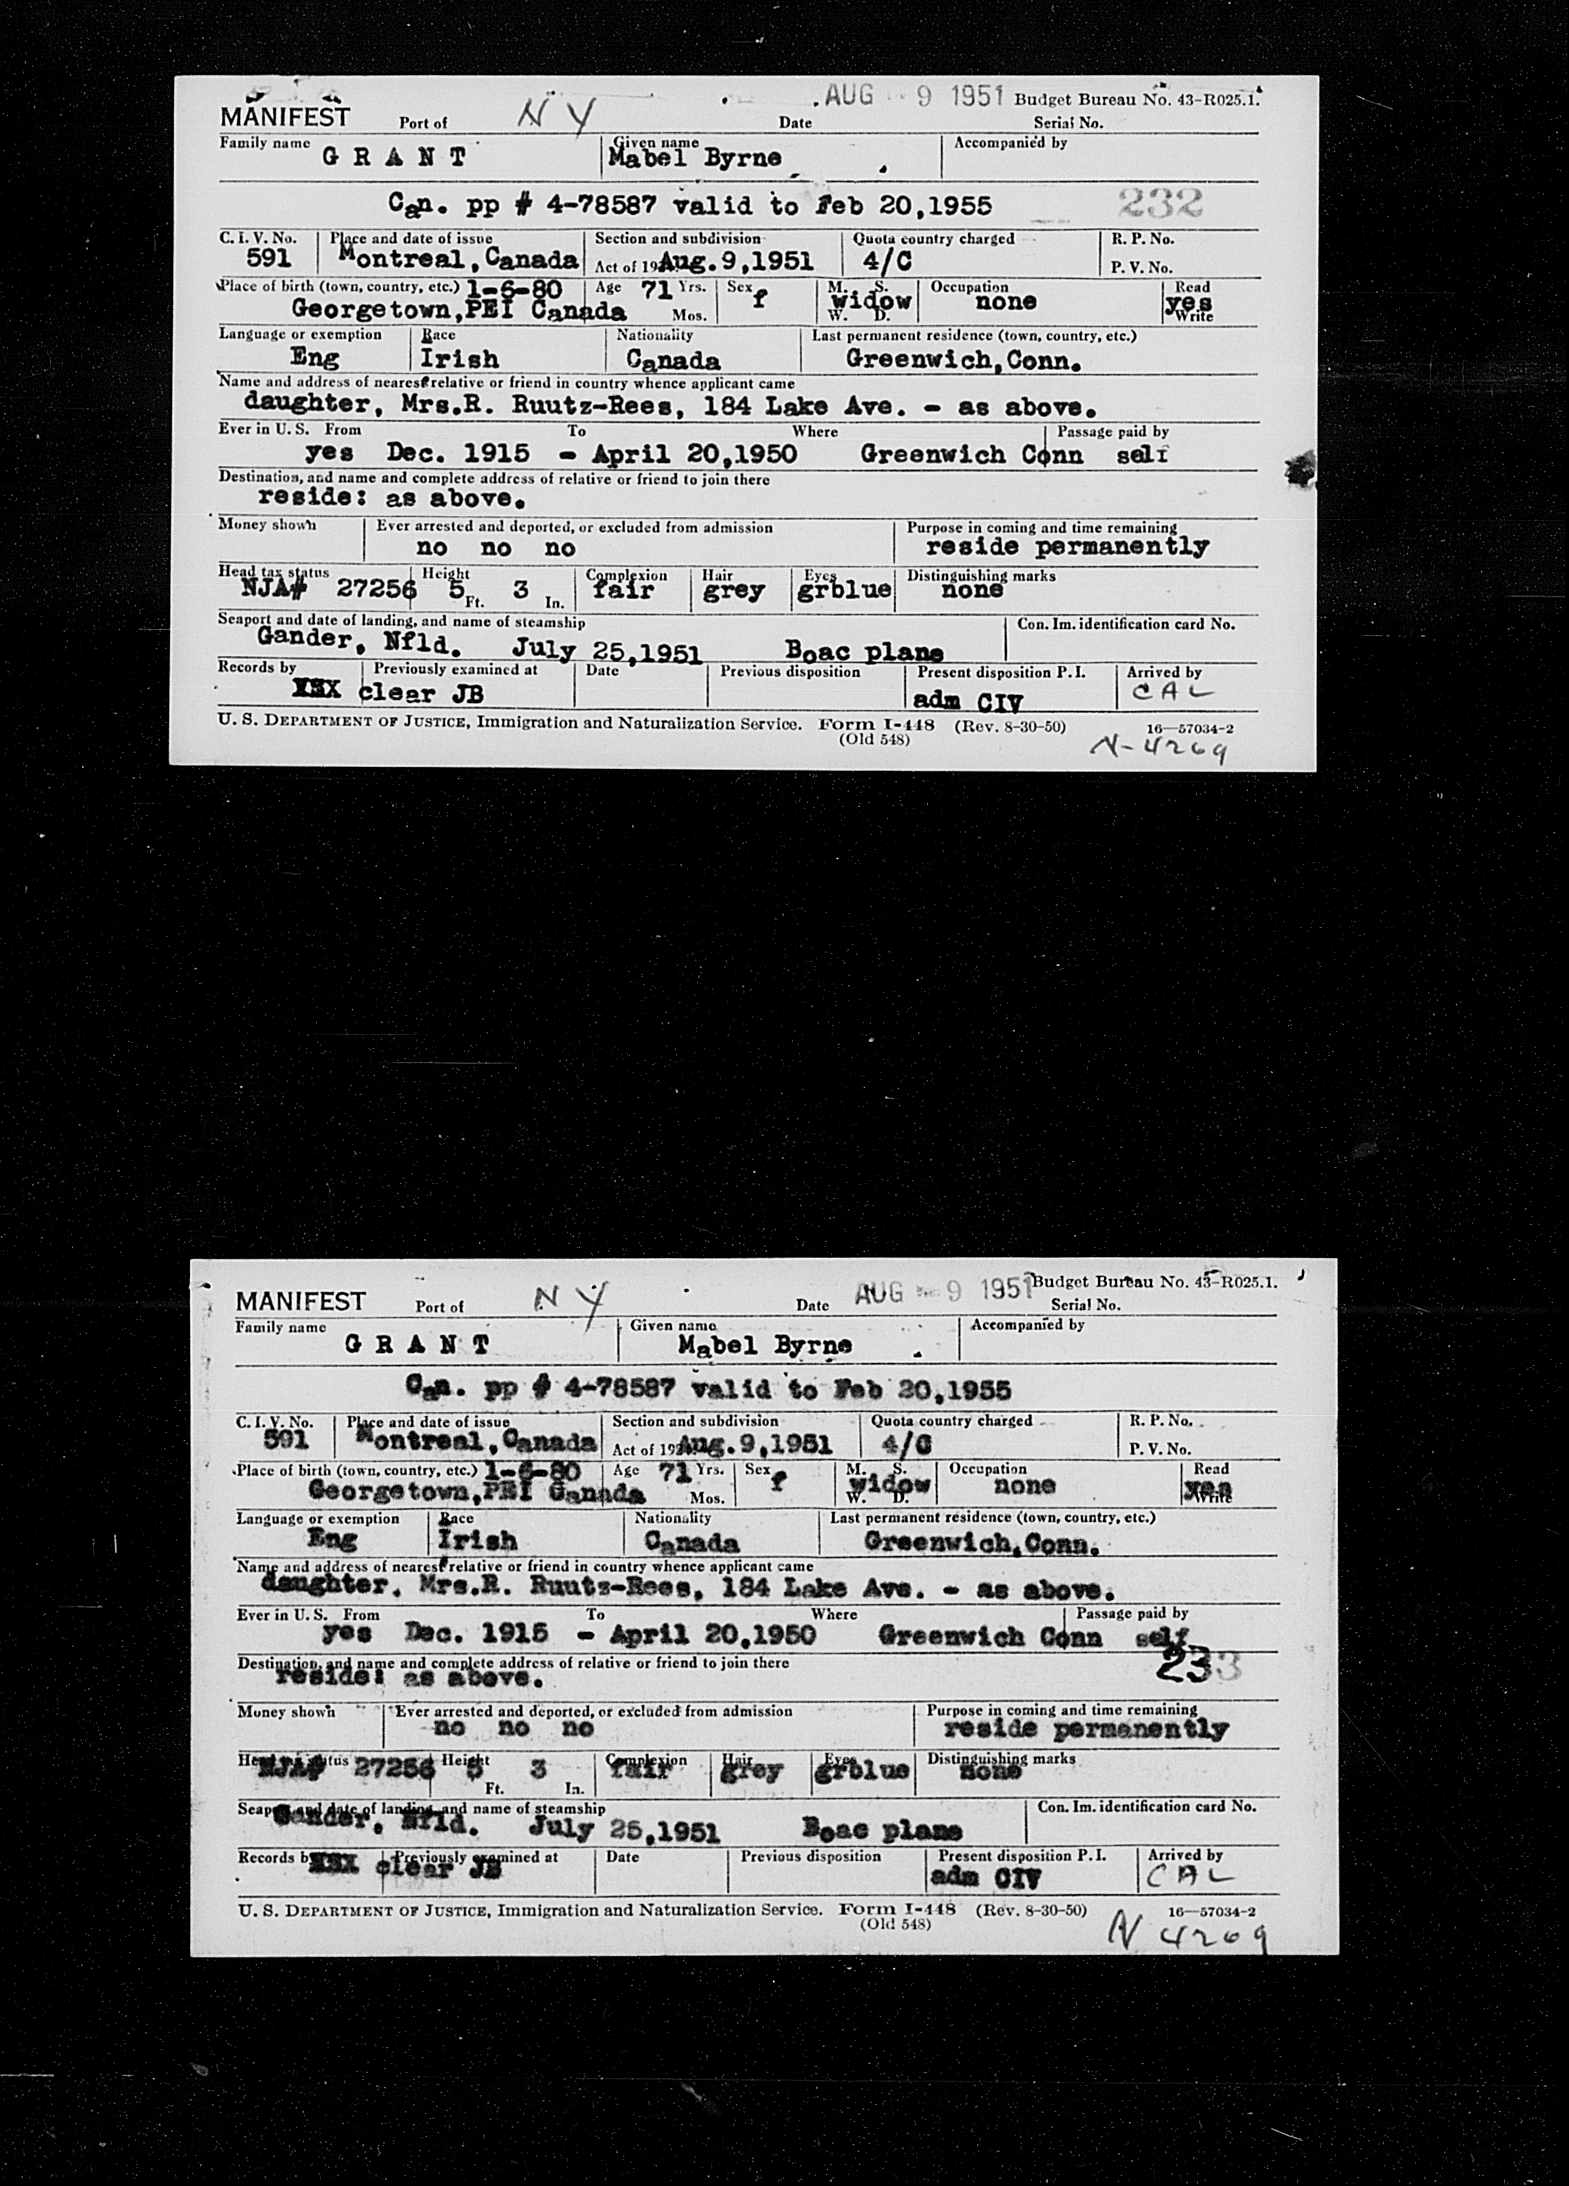 MANIFEST Port of N Y Date AUG 9 1951 Budget Bureau No. 43-R025.1.
Serial No.
Family name GRANT Given name Mabel Byrne Accompanied by
Can. pp # 4-78587 valid to Feb 20,1955 232
C. I. V. No. Place and date of issue Section and subdivision Quota country charged R. P. No.
591 Montreal, Canada Act of 19 Aug. 9,1951 4/C P. V. No.
Place of birth (town, country, etc.) 1-6-80 Age 71 Yrs. Sex f M. S. widow Occupation Read
Georgetown, PEI Canada Mos. W. D. none yes Write
Language or exemption Race Nationality Last permanent residence (town, country, etc.)
Eng Irish Canada Greenwich, Conn.
Name and address of nearest relative or friend in country whence applicant came
daughter, Mrs.R. Ruutz-Rees, 184 Lake Ave. - as above.
Ever in U. S. From To Where Passage paid by
yes Dec. 1915 - April 20,1950 Greenwich Conn self
Destination, and name and complete address of relative or friend to join there
reside: as above.
Money shown Ever arrested and deported, or excluded from admission Purpose in coming and time remaining
no no no reside permanently
Head tax status Height Complexion Hair Eyes Distinguishing marks
NJA# 27256 5 Ft. 3 In. fair grey grblue none
Seaport and date of landing, and name of steamship Con. Im. identification card No.
Gander, Nfld. July 25,1951 Boac plane
Records by Previously examined at Date Previous disposition Present disposition P. I. Arrived by
clear JB adm CIV CAL
U. S. DEPARTMENT OF JUSTICE, Immigration and Naturalization Service. Form I-448 (Rev. 8-30-50) 16—57034-2
(Old 548) N-4269
MANIFEST Port of N Y Date AUG 9 1951 Budget Bureau No. 43-R025.1.
Serial No.
Family name GRANT Given name Mabel Byrne Accompanied by
Can. pp # 4-78587 valid to Feb 20,1955
C. I. V. No. Place and date of issue Section and subdivision Quota country charged R. P. No.
591 Montreal, Canada Act of 192 Aug. 9,1951 4/C P. V. No.
Place of birth (town, country, etc.) 1-6-80 Age 71 Yrs. Sex f M. S. widow Occupation Read
Georgetown, PEI Canada Mos. W. D. none yes Write
Language or exemption Race Nationality Last permanent residence (town, country, etc.)
Eng Irish Canada Greenwich, Conn.
Name and address of nearest relative or friend in country whence applicant came
daughter, Mrs.R. Ruutz-Rees, 184 Lake Ave. - as above.
Ever in U. S. From To Where Passage paid by
yes Dec. 1915 - April 20,1950 Greenwich Conn self
Destination, and name and complete address of relative or friend to join there 233
reside: as above.
Money shown Ever arrested and deported, or excluded from admission Purpose in coming and time remaining
no no no reside permanently
Head tax status Height Complexion Hair Eyes Distinguishing marks
NJA# 27256 5 Ft. 3 In. fair grey grblue none
Seaport and date of landing, and name of steamship Con. Im. identification card No.
Gander, Nfld. July 25,1951 Boac plane
Records by Previously examined at Date Previous disposition Present disposition P. I. Arrived by
clear JB adm CIV CAL
U. S. DEPARTMENT OF JUSTICE, Immigration and Naturalization Service. Form I-448 (Rev. 8-30-50) 16—57034-2
(Old 548) N 4269